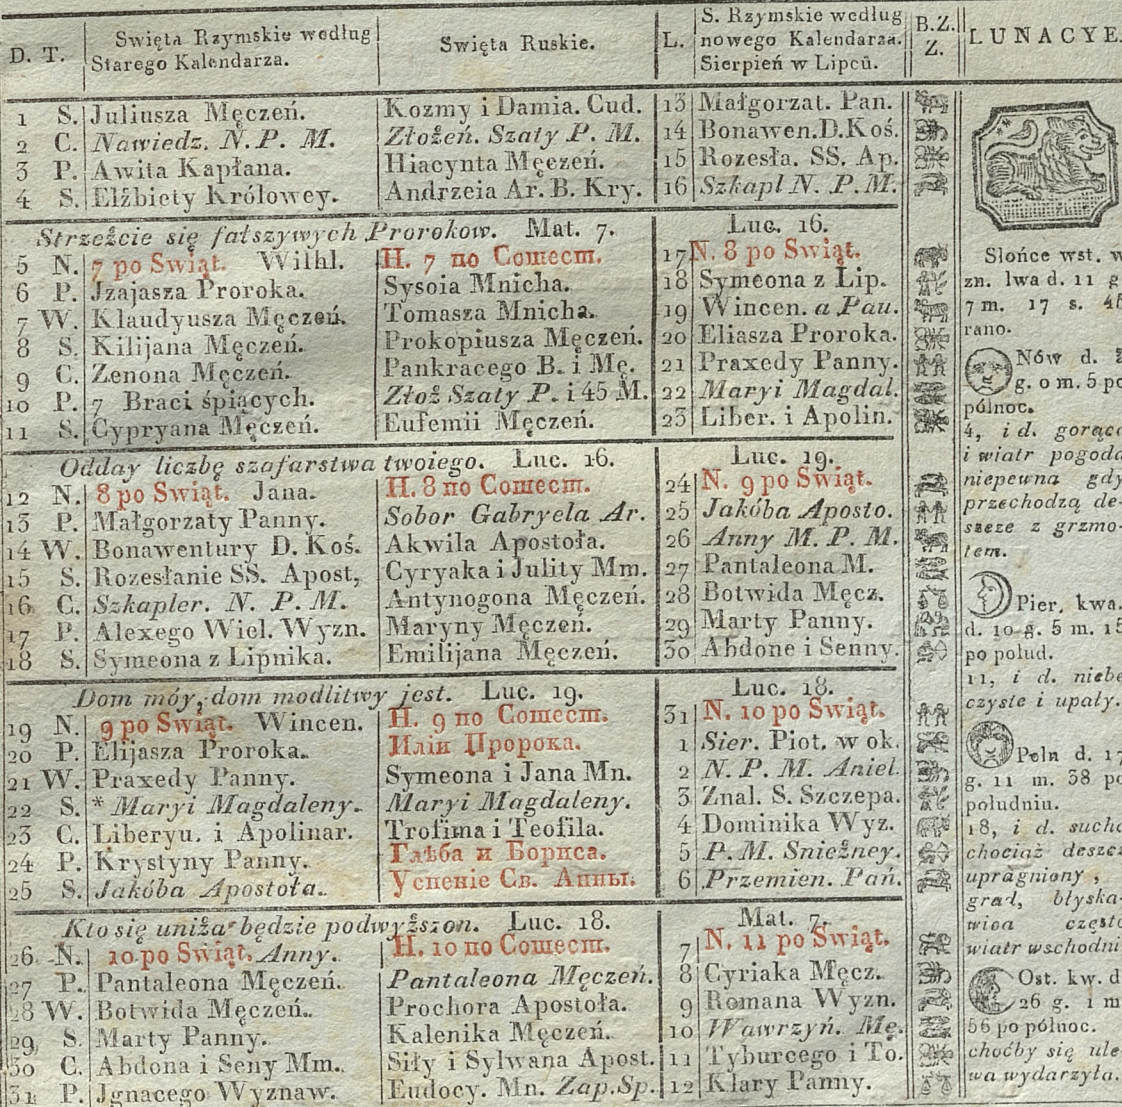 D. T. Swięta Rzymskie według Starego Kalendarza. Swięta Ruskie. L. S. Rzymskie według nowego Kalendarza. Sierpień w Lipcú. B.Z. Z. LUNACYE.
1 S. Juliusza Męczeń. Kozmy i Damia. Cud. 13 Małgorzat. Pan.
2 C. Nawiedz. N. P. M. Złożeń. Szaty P. M. 14 Bonawen.D.Koś.
3 P. Awita Kapłana. Hiacynta Męczeń. 15 Rozesła. SS. Ap.
4 S. Elżbiety Królowey. Andrzeia Ar. B. Kry. 16 Szkapl N. P. M.
Strzeżcie się fałszywych Prorokow. Mat. 7. Luc. 16.
5 N. 7 po Swiąt. Wilhl. Н. 7 по Сошест. 17 N. 8 po Swiąt.
6 P. Jzajasza Proroka. Sysoia Mnicha. 18 Symeona z Lip.
7 W. Klaudyusza Męczeń. Tomasza Mnicha. 19 Wincen. a Pau.
8 S. Kilijana Męczeń. Prokopiusza Męczeń. 20 Eliasza Proroka.
9 C. Zenona Męczeń. Pankracego B. i Mę. 21 Praxedy Panny.
10 P. 7 Braci śpiących. Złoż Szaty P. i 45 M. 22 Maryi Magdal.
11 S. Cypryana Męczeń. Eufemii Męczeń. 23 Liber. i Apolin.
Odday liczbę szafarstwa twoiego. Luc. 16. Luc. 19.
12 N. 8 po Swiąt. Jana. Н. 8 по Сошест. 24 N. 9 po Swiąt.
13 P. Małgorzaty Panny. Sobor Gabryela Ar. 25 Jakóba Aposto.
14 W. Bonawentury D. Koś. Akwila Apostoła. 26 Anny M. P. M.
15 S. Rozesłanie SS. Apost, Cyryaka i Julity Mm. 27 Pantaleona M.
16 C. Szkapler. N. P. M. Antynogona Męczeń. 28 Botwida Męcz.
17 P. Alexego Wiel. Wyzn. Maryny Męczeń. 29 Marty Panny.
18 S. Symeona z Lipnika. Emilijana Męczeń. 30 Abdone i Senny.
Dom móy, dom modlitwy jest. Luc. 19. Luc. 18.
19 N. 9 po Swiąt. Wincen. Н. 9 по Сошест. 31 N. 10 po Swiąt.
20 P. Elijasza Proroka. Иліи Пророка. 1 Sier. Piot. w ok.
21 W. Praxedy Panny. Symeona i Jana Mn. 2 N. P. M. Aniel.
22 S. * Maryi Magdaleny. Maryi Magdaleny. 3 Znal. S. Szczepa.
23 C. Liberyu. i Apolinar. Trofima i Teofila. 4 Dominika Wyz.
24 P. Krystyny Panny. Глѣба и Бориса. 5 P. M. Snieżney.
25 S. Jakóba Apostoła. Успеніе Св. Анны. 6 Przemien. Pań.
Kto się uniża będzie podwyższon. Luc. 18. Mat. 7.
26 N. 10 po Swiąt. Anny. Н. 10 по Сошест. 7 N. 11 po Swiąt.
27 P. Pantaleona Męczeń. Pantaleona Męczeń. 8 Cyriaka Męcz.
28 W. Botwida Męczeń. Prochora Apostoła. 9 Romana Wyzn.
29 S. Marty Panny. Kalenika Męczeń. 10 Wawrzyń. Mę.
30 C. Abdona i Seny Mm. Siły i Sylwana Apost. 11 Tyburcego i To.
31 P. Jgnacego Wyznaw. Eudocy. Mn. Zap.Sp. 12 Klary Panny.
Słońce wst. w
zn. lwa d. 11 g.
7 m. 17 s. 45
rano.
Nów d.
g. 0 m. 5 po
pólnoc.
4, i d. gorąco
i wiatr pogoda
niepewna gdy
przechodzą de-
szcze z grzmo-
tem.
Pier. kwa.
d. 10 g. 5 m. 15
po połud.
11, i d. niebo
czyste i upały.
Pełn d. 17
g. 11 m. 38 po
południu.
18, i d. sucho
chociaż deszcz
upragniony,
grad, błyska-
wica często
wiatr wschodni
Ost. kw. d
26 g. 1 m
56 po północ.
choćby się ule-
wa wydarzyła.